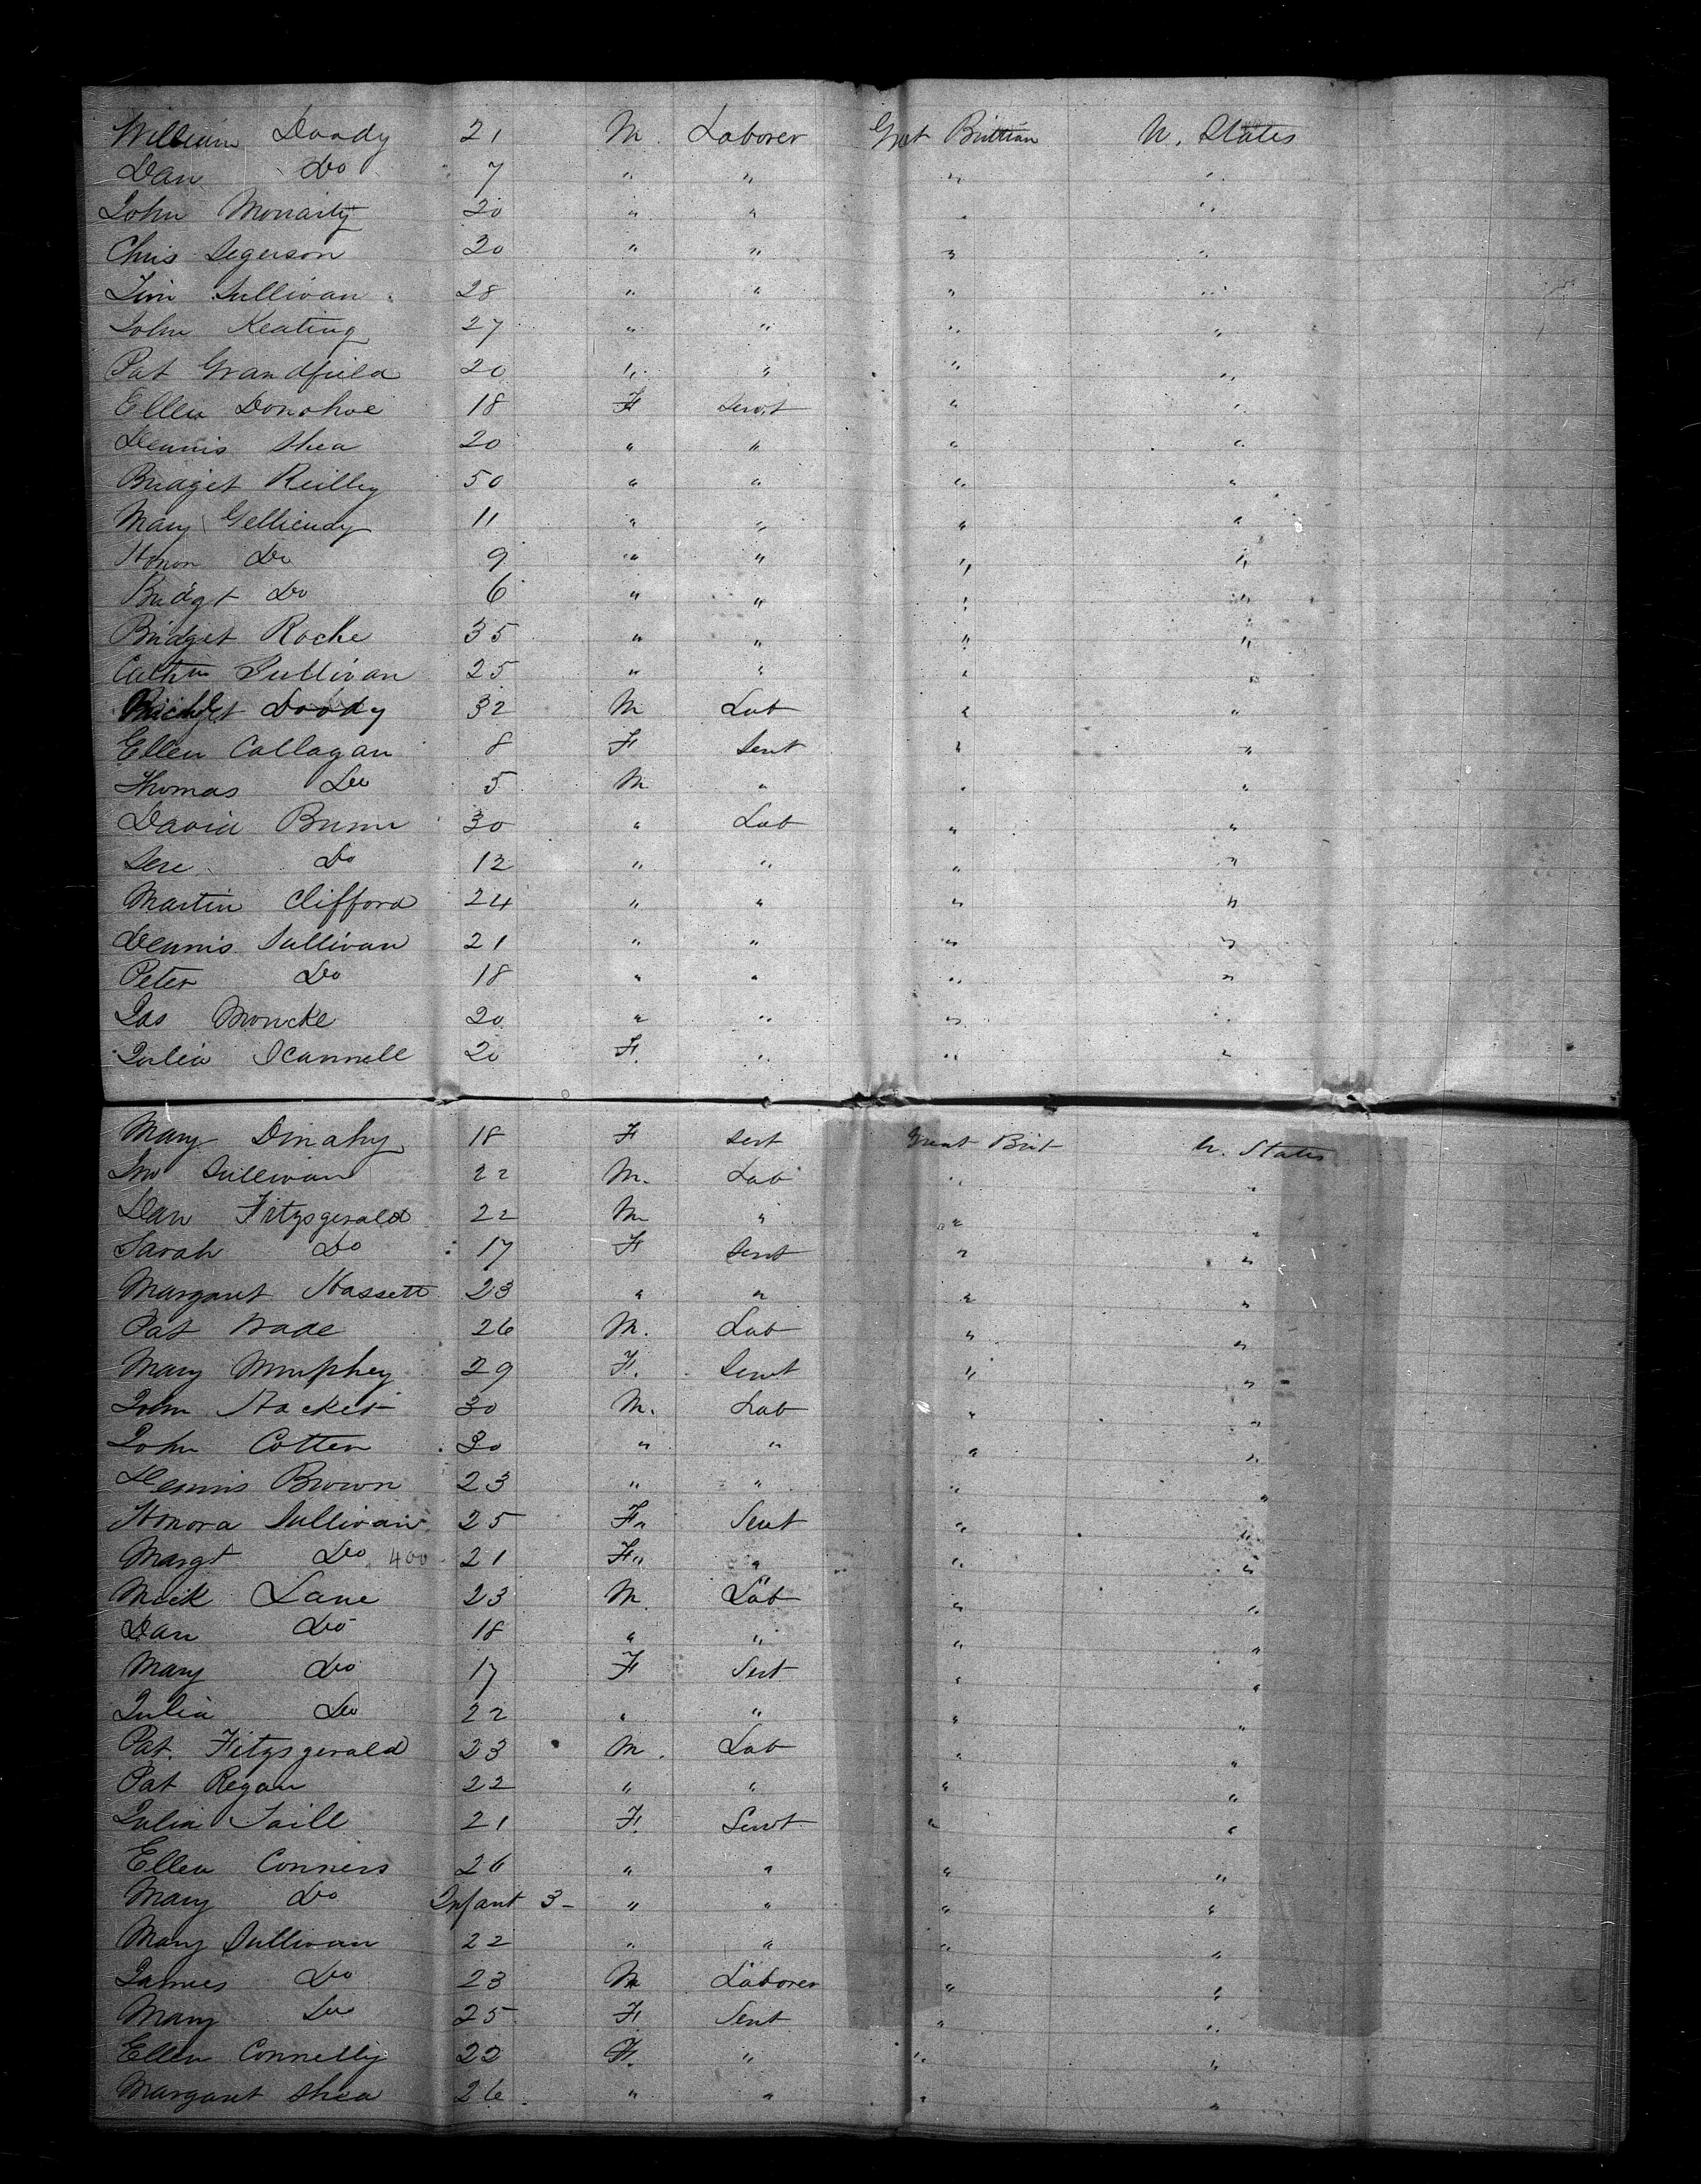 William Doody 21 M. Laborer Great Brittian U. States
Dan Do 7 " " " "
John Moriarty 20 " " " "
Chris Segerson 20 " " " "
Tim Sullivan 28 " " " "
John Keating 27 " " " "
Pat Grandfield 20 " " " "
Ellen Donohoe 18 F Servt " "
Dennis Shea 20 " " " "
Bridget Reilly 50 " " " "
Mary Gellicudy 11 " " " "
Honor Do 9 " " " "
Bridgt Do 6 " " " "
Bridget Roche 35 " " " "
Cathrn Sullivan 25 " " " "
Doody 32 M Lab " "
Ellen Callagan 8 F Servt " "
Thomas Do 5 M " " "
David 30 " Lab " "
Jere Do 12 " " " "
Martin Clifford 24 " " " "
Dennis Sullivan 21 " " " "
Peter Do 18 " " " "
Jas Moncke 20 " " " "
Julia Scannell 20 F. " " "
Mary Dinahy 18 F Sert Great Brit U. States
Jno Sullivan 22 M. Lab " "
Dan Fitzsgerald 22 M " " "
Sarah Do 17 F Servt " "
Margaret Hassett 23 " " " "
Pat Wade 26 M. Lab " "
Mary Murphey 29 F. Servt " "
John Hacket 30 M. Lab " "
John Cotter 30 " " " "
Dennis Brown 23 " " " "
Honora Sullivan 25 F " Servt " "
Margt Do 400 21 F " " " "
Mick Lane 23 M. Lab " "
Dan Do 18 " " " "
Mary Do 17 F Sert " "
Julia Do 22 " " " "
Pat. Fitzsgerald 23 M. Lab " "
Pat Regan 22 " " " "
Julia 21 F. Servt " "
Ellen Conners 26 " " " "
Mary Do Infant 3 - " " " "
Mary Sullivan 22 " " " "
James Do 23 M Laborer " "
Mary Do 25 F Servt " "
Ellen Connelly 22 F. " " "
Margaret Shea 26 " " " "